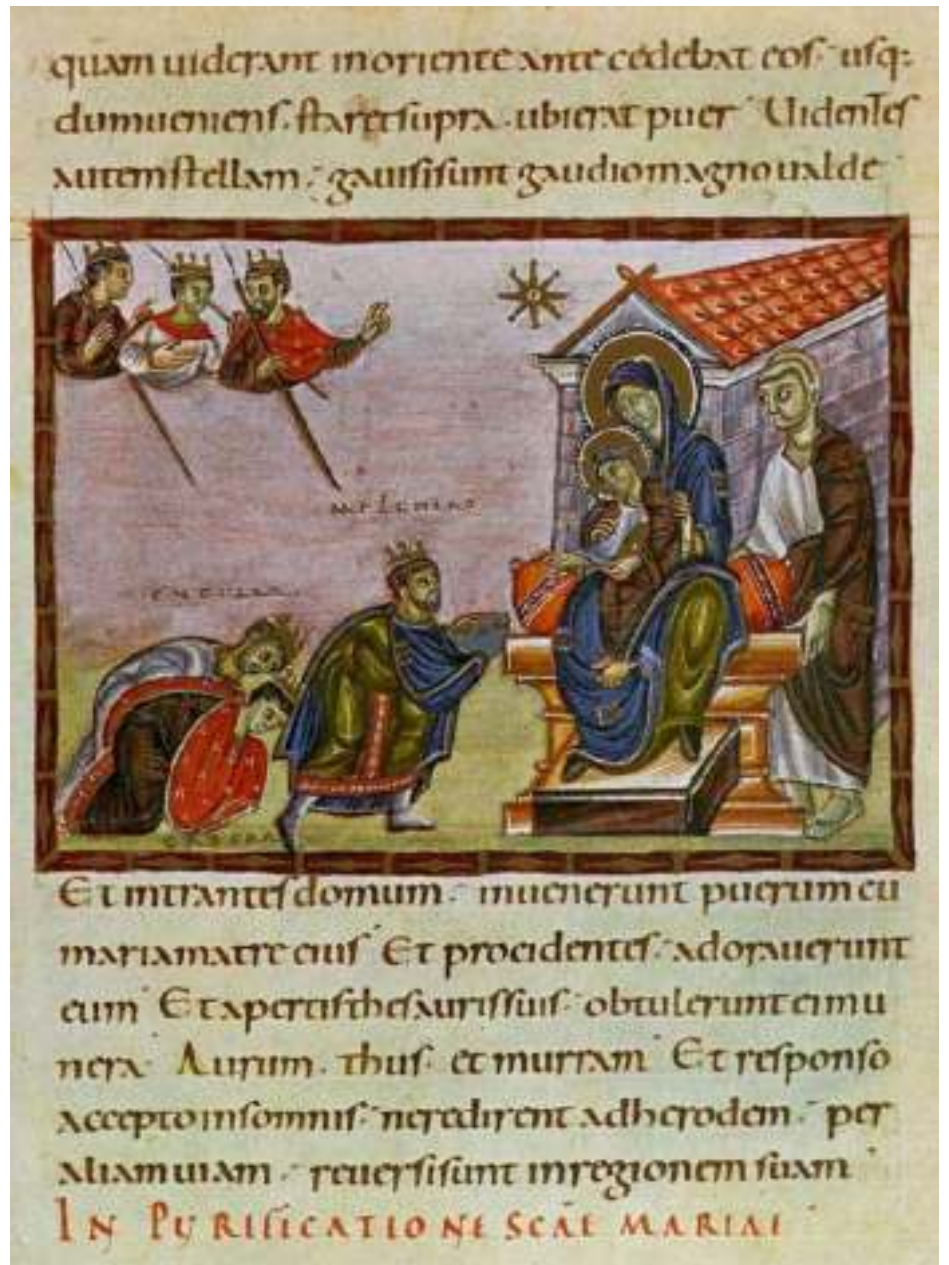 quam uiderant in oriente antecedebat eos· usq:
dum ueniens· staret supra· ubi erat puer Uidentes
autem stellam· gauisi sunt gaudio magno ualde
MELCHIAS
Et intrantes domum· inuenerunt puerum cu
maria matre eius Et procidentes· adorauerunt
eum Et apertis thesauris suis· obtulerunt ei mu
nera· Aurum· thus· et murram Et responso
accepto in somnis· ne redirent ad herodem· per
aliam uiam· reuersi sunt in regionem suam
IN PURIFICATIONE SCAE MARIAE